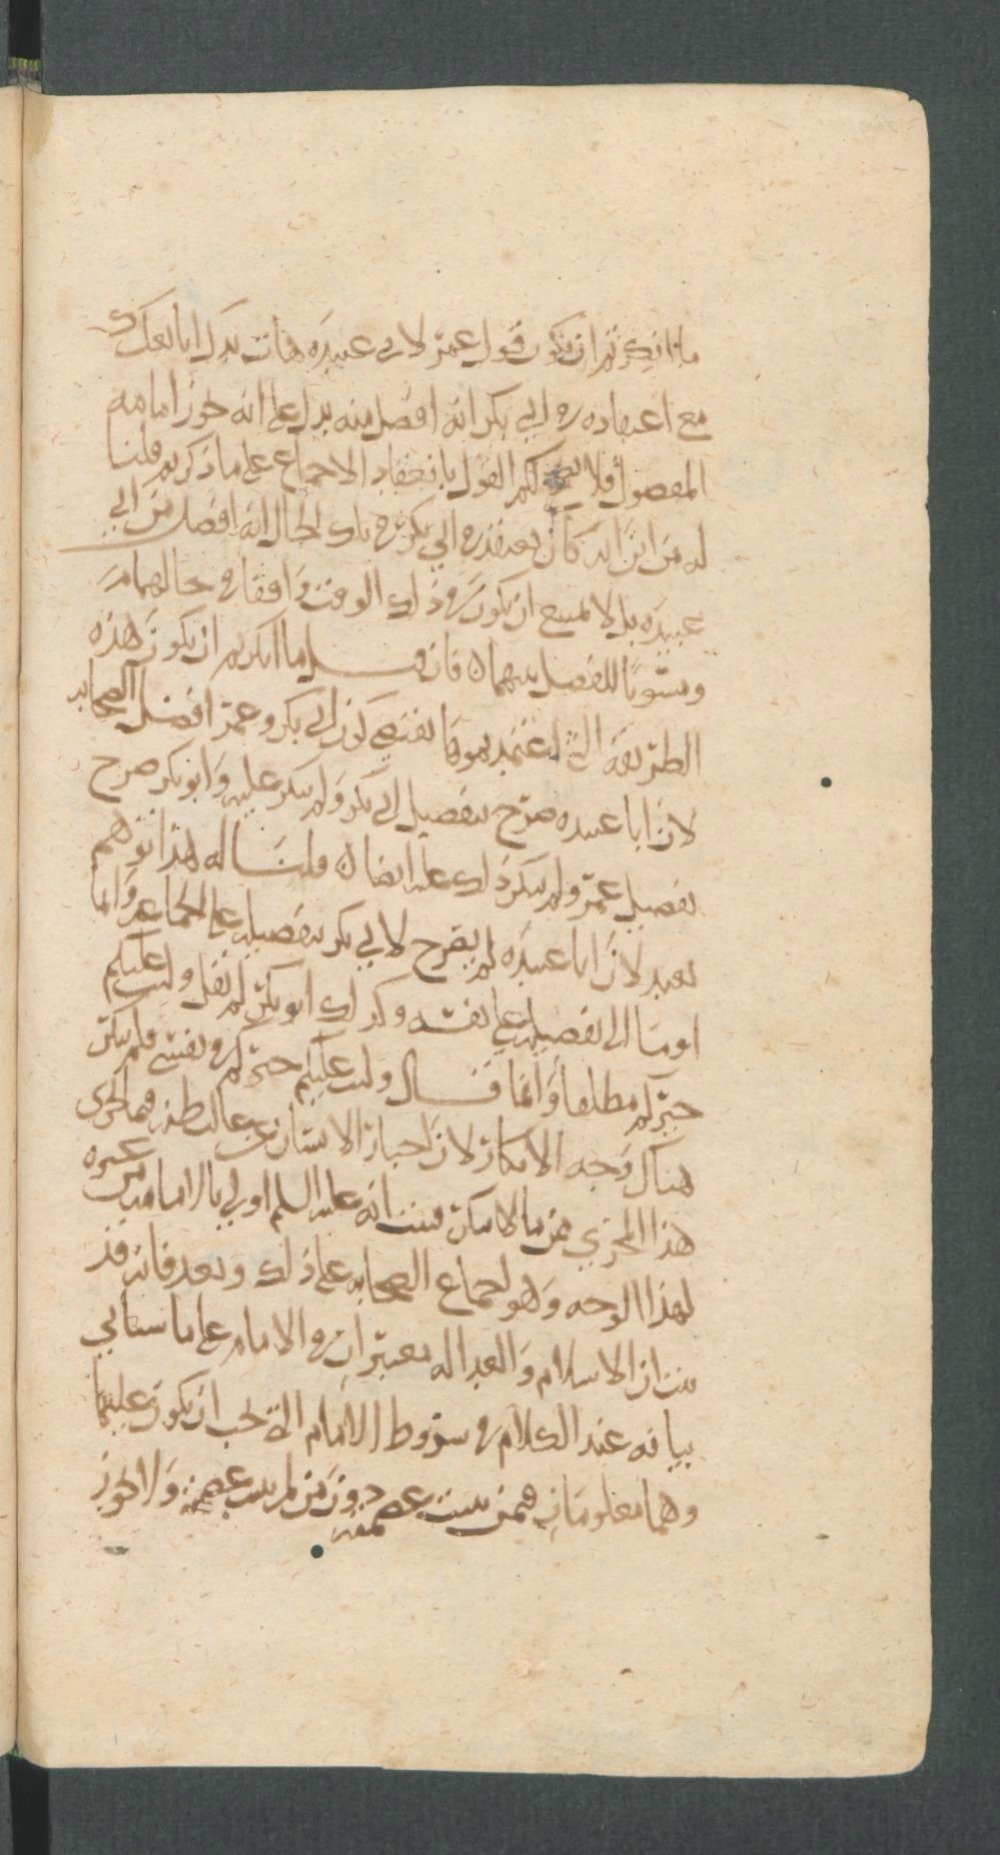 ما انكرتم ان يكون قول عمر لابي عبيده هات يدك ابايعك
مع اعتقاده في ابي بكر انه افضل منه يدل على انه يجوز امامه
المفضول فلا يصح لكم القول بانعقاد الاجماع على ما ذكرتم قلنا
له من اين انه كان يعتقد في ابي بكر في تلك الحال انه افضل من ابي
عبيده بل لا يمتنع ان يكون في ذلك الوقت واقفا في حالهما
ومسويا للفضل بينهما فان قيل ما انكرتم ان يكون هذه
الطريقه التي اعتمدتموها تقتضي كون ابي بكر وعمر افضل الصحابه
لان ابا عبيده صرح بتفضيل ابي بكر ولم ينكر عليه وابو بكر صرح
بتفضيل عمر ولم ينكر ذلك عليه ايضا قلنا له هذا توهم
بعيد لان ابا عبيده لم يصرح لابي بكر بتفضيله على الجماعه وانما
اومأ الى تفضيله على نفسه وكذلك ابو بكر لم يقل وليت عليكم
خيركم مطلقا وانما قال وليت عليكم خيركم في نفسي فلم يكن
هناك وجه الانكار لان اخبار الانسان عن غالب ظنه فيما يجري
هذا المجرى مما لا ينكر فثبت انه عليه السلم اولى بالامامه من غيره
لهذا الوجه وهو اجماع الصحابه على ذلك وبعد فانه قد
ثبت ان الاسلام والعداله معتبران في الامام على ما سياتي
بيانه عند الكلام في شروط الامام التي يجب ان يكون عليها
وهما معلومان فيمن ثبت عصمته دون من لم يثبت عصمته ولا يجوز